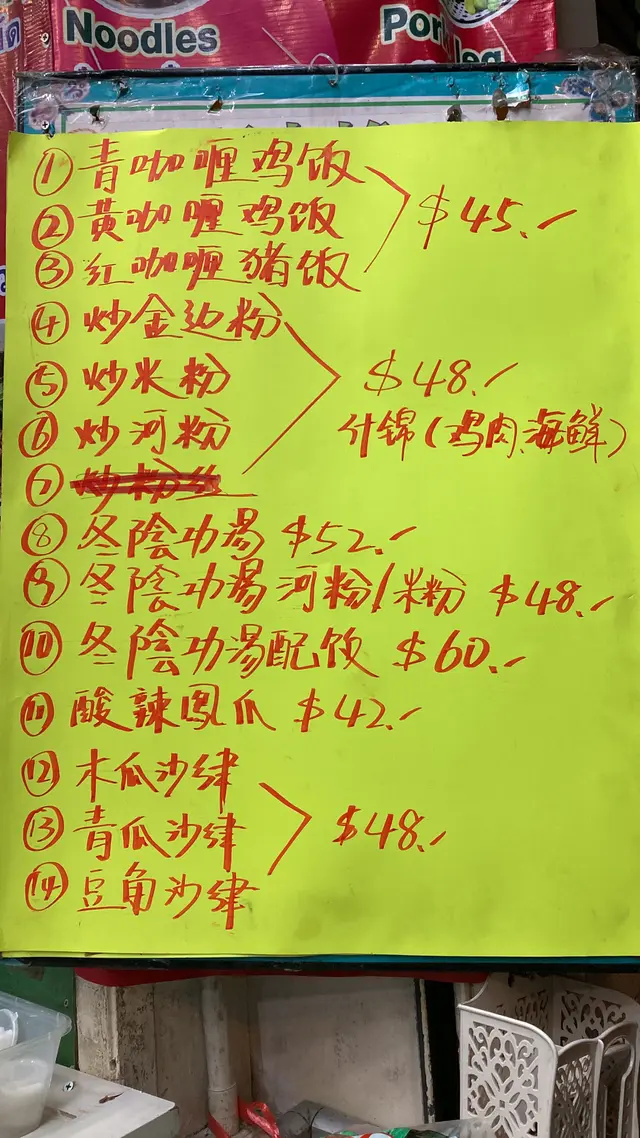 Noodles
① 青咖喱鸡饭
② 黄咖喱鸡饭
$45.-
③ 红咖喱猪饭
④ 炒金边粉
⑤ 炒米粉
$48.-
⑥ 炒河粉
什锦(鸡肉、海鲜)
⑦ 炒粉丝
⑧ 冬陰功湯 $52.-
⑨ 冬陰功湯河粉/米粉 $48.-
⑩ 冬陰功湯配饭 $60.-
⑪ 酸辣鳳爪 $42.-
⑫ 木瓜沙律
⑬ 青瓜沙律
$48.-
⑭ 豆角沙律